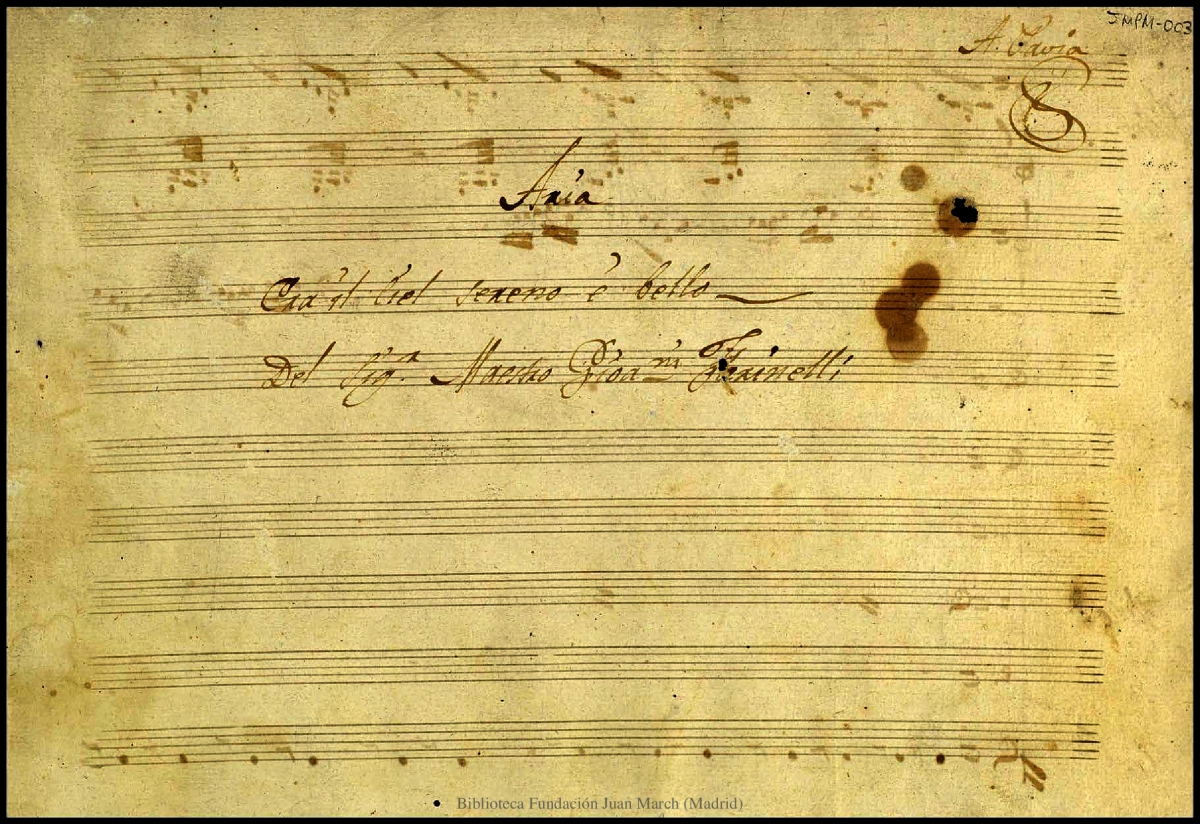 JMPM-003
A. Pavia
Aria
Già il Ciel sereno è bello
Del Sigr. Maestro Gioani Farinelli
Biblioteca Fundación Juan March (Madrid)